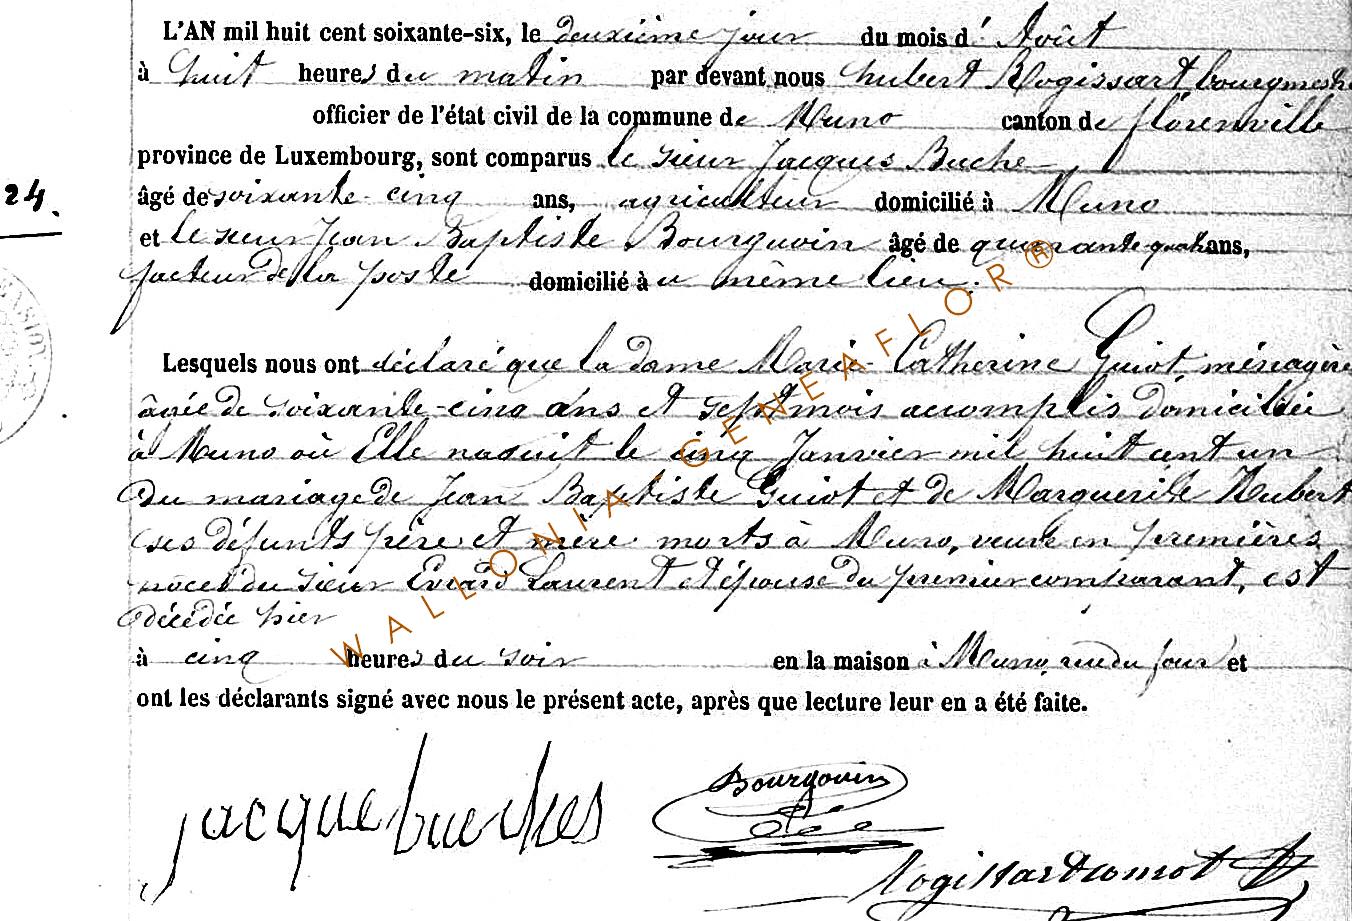 L'AN mil huit cent soixante-six, le deuxième jour du mois d' Août
à huit heures du matin par devant nous hubert Rogissart bourgmestre
officier de l'état civil de la commune de Muno canton de florenville
province de Luxembourg, sont comparus le sieur Jacques Buche
24.
âgé de soixante-cinq ans, agriculteur domicilié à Muno
et le sieur Jean Baptiste Bourguoin âgé de quarante quatre ans,
facteur de la poste domicilié à u même lieu.
Lesquels nous ont déclaré que la dame Marie Catherine Guiot ménagère
âgée de soixante-cinq ans et sept mois accomplis domiciliée
à Muno où Elle naquit le cinq Janvier mil huit cent un
du mariage de Jean Baptiste Guiot et de Marguerite Hubert
ses défunts père et mère morts à Muno, veuve en premières
noces du sieur Evrard Laurent et épouse du premier comparant, est
décédée hier
à cinq heures du soir en la maison à Muno, rue du four et
ont les déclarants signé avec nous le présent acte, après que lecture leur en a été faite.
jacque buches
Bourgouin
Rogissart
WALLONIA GENEAFLOR ®